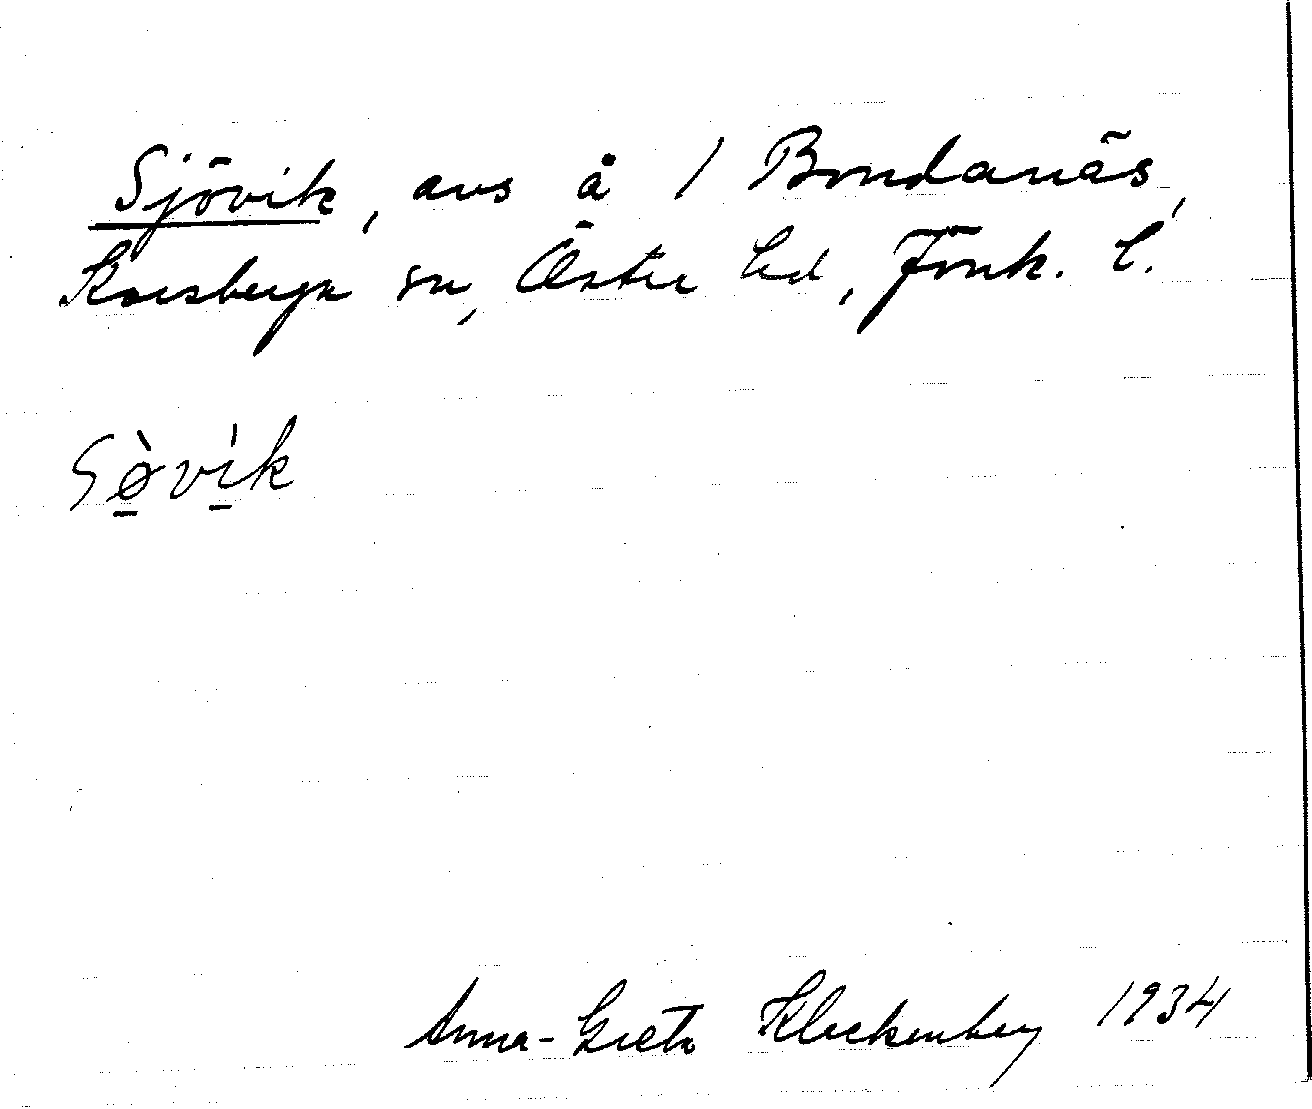 Sjövik, avs å 1 Bondanäs,
Korsberga sn, Östra hd, Jönk. l.
Sø̀vík
Anna-Greta Klockenberg 1934